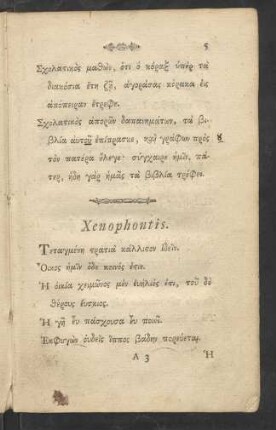 5
Σχολατικὸς μαθὼν, ὅτι ὁ κόραξ ὑπὲρ τὰ
διακόσια ἔτη ζῇ, ἀγοράσας κόρακα εἰς
ἀπόπειραν ἔτρεφε.
Σχολατικὸς ἀπορῶν δαπανημάτων, τὰ βι-
βλία αὐτοῦ ἐπίπρασκε, καὶ γράφων πρὸς
τὸν πατέρα ἔλεγε· σύγχαιρε ἡμῖν, πά-
τερ, ἤδη γὰρ ἡμᾶς τὰ βιβλία τρέφει.
Xenophontis.
Τεταγμένη στρατιὰ κάλλιστον ἰδεῖν.
Ὁ οἶκος ἡμῖν ὅδε κοινός ἐστιν.
Ἡ οἰκία χειμῶνος μὲν εὐήλιός ἐστι, τοῦ δὲ
θέρους εὔσκιος.
Ἡ γῆ εὖ πάσχουσα εὖ ποιεῖ.
Ἐκφυγὼν οὐδεὶς ἵππος βάδην πορεύεται.
A 3
Ἡ